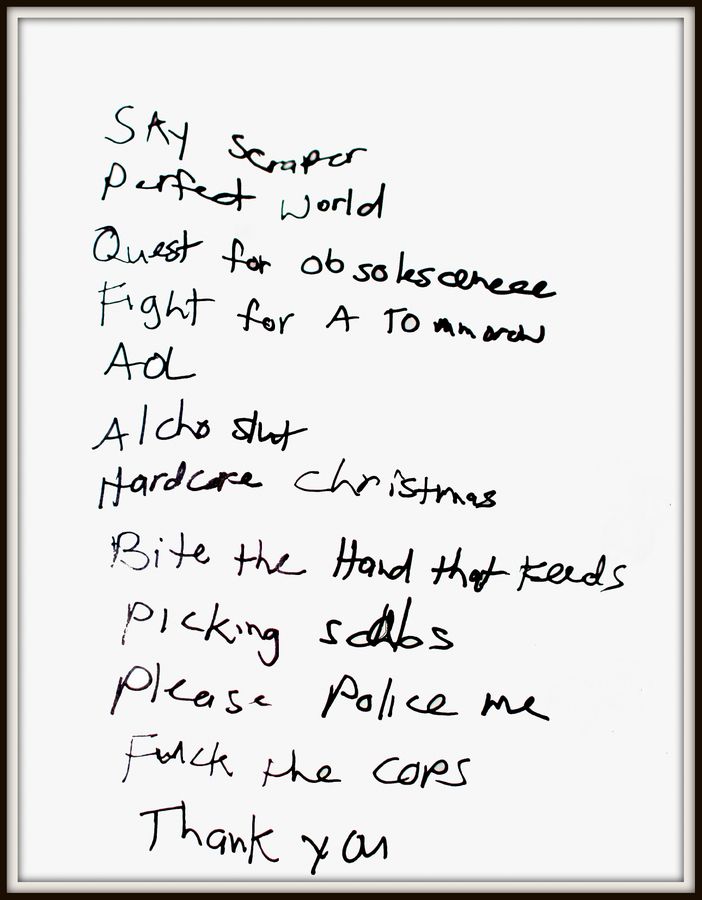 SKY scraper
Perfect World
Quest for obsolesceneee
Fight for A TOmmorow
AOL
Alcho slut
Hardcore Christmas
Bite the Hand that Feeds
Picking scabs
Please Police me
Fuck the cops
Thank you